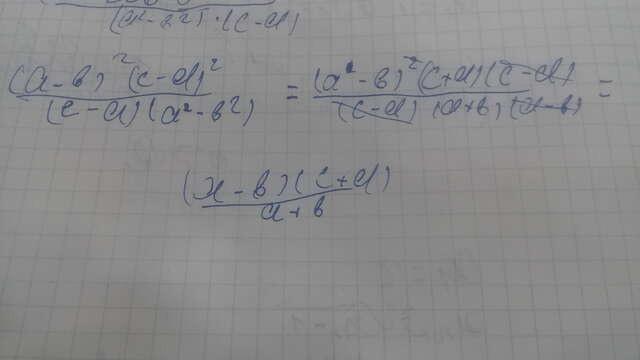 (a²-b²)·(c-d)
(a-b)²(c-d)² / (c-d)(a²-b²) = (a²-b)²(c+d)(c-d) / (c-d)(a+b)(a-b) =
(a-b)(c+d) / a+b